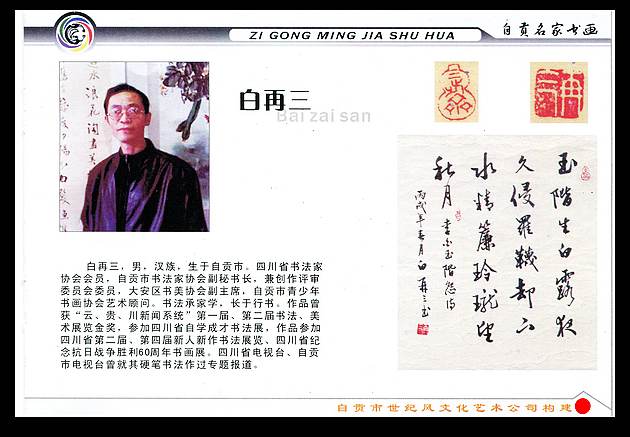 ZI GONG MING JIA SHU HUA
自贡名家书画
白再三
Bai zai san
白再三，男，汉族，生于自贡市。四川省书法家
协会会员，自贡市书法家协会副秘书长，兼创作评审
委员会委员，大安区书美协会副主席，自贡市青少年
书画协会艺术顾问。书法承家学，长于行书。作品曾
获“云、贵、川新闻系统”第一届、第二届书法、美
术展览金奖，参加四川省自学成才书法展，作品参加
四川省第二届、第四届新人新作书法展览、四川省纪
念抗日战争胜利60周年书画展。四川省电视台、自贡
市电视台曾就其硬笔书法作过专题报道。
玉階生白露夜
久侵羅襪却下
水精簾玲瓏望
秋月
李白玉階怨詩
丙戌年春月白再三书
自贡市世纪风文化艺术公司构建